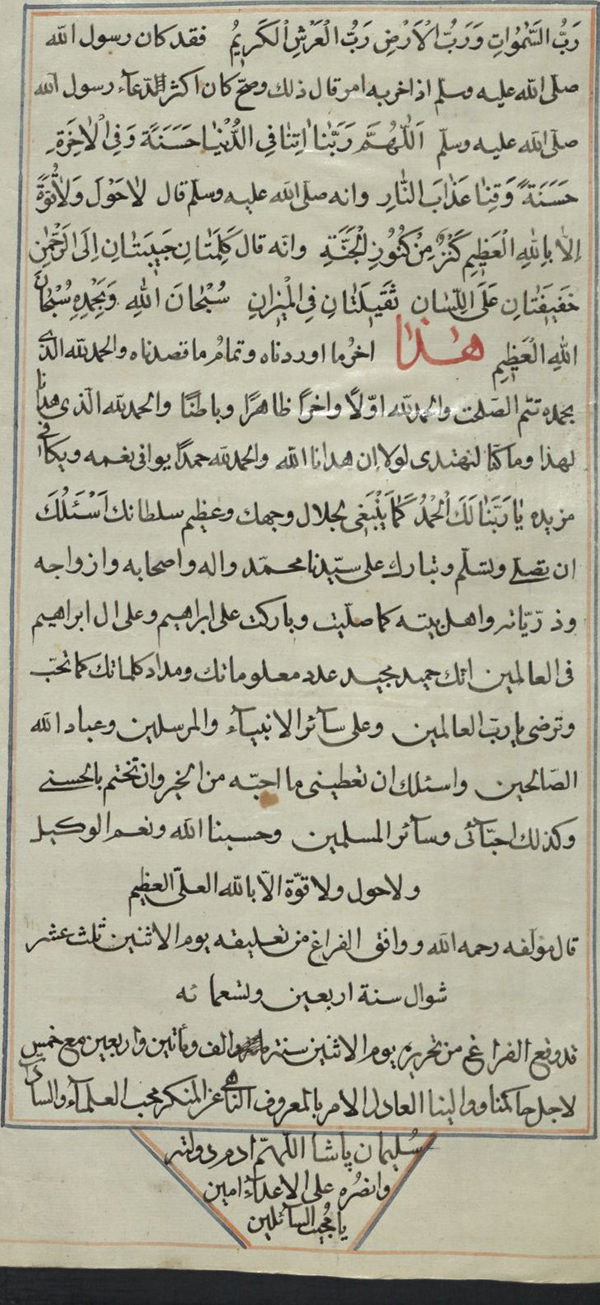 رَبُّ السَّمٰوَاتِ وَرَبُّ الْاَرْضِ رَبُّ الْعَرْشِ الْكَرِيمُ فقد كان رسول الله
صلى الله عليه وسلم اذا حزبه امر قال ذلك وصح كان اكثر الدعاء رسول الله
صلى الله عليه وسلم اَللّٰهُمَّ رَبَّنَا اٰتِنَا فِي الدُّنْيَا حَسَنَةً وَفِي الْاٰخِرَةِ
حَسَنَةً وَقِنَا عَذَابَ النَّارِ وانه صلى الله عليه وسلم قال لاٰحَوْلَ وَلاٰقُوَّةَ
اِلاّٰ بِاللّٰهِ الْعَظِيمِ كَنْزٌ مِنْ كُنُوزِ الْجَنَّةِ وانّه قال كَلِمَتٰانِ حَبِيبَتٰانِ اِلَى الرَّحْمٰنِ
خَفِيفَتٰانِ عَلَى اللِّسٰانِ ثَقِيلَتٰانِ فِي الْمِيزٰانِ سُبْحٰانَ اللّٰهِ وَبِحَمْدِهِ سُبْحٰانَ
اللّٰهِ الْعَظِيمِ هٰذا اخر ما اوردناه وتمام ما قصدناه والحمد لله الذى
بحمده تتم الصلحت والحمد لله اوّلًا واخرًا ظاهرًا وباطنًا والحمد لله الّذى هدانا
لهذا وما كنّا لنهتدى لولا ان هدانا الله والحمد لله حمدًا يوافى نعمه ويكافى
مزيده يٰا رَبَّنٰا لَكَ الْحَمْدُ كَمٰا يَنْبَغِي لجلال وجهك وعظيم سلطانك اَسْئَلُكَ
ان تصلى وتسلّم وتبارك على سيّدنا محمّد واله واصحابه وازواجه
وذرّيّاته واهل بيته كما صلّيت وباركت على ابراهيم وعلى ال ابراهيم
فى العالمين انّك حميد مجيد عدد معلوماتك ومداد كلماتك كما تحبّ
وترضى يا ربّ العالمين وعلى سآئر الانبيآء والمرسلين وعباد الله
الصّالحين واسئلك ان تعطينى ما احبّه من الخير وان تختم بالحسنى
وكذلك احبّآئى وسآئر المسلمين وحسبنا الله ونعم الوكيل
ولا حول ولا قوّة الّا بالله العلىّ العظيم
قال مؤلّفه رحمه الله ووافق الفراغ من تعليقه يوم الاثنين ثلث عشر
شوال سنة اربعين وتسعمائه
قد وقع الفراغ من تحريره يوم الاثنين سنة الف ومأتين واربعين مع خمس
لاجل حاكمنا ووالينا العادل الامر بالمعروف النّاهى عن المنكر محبّ العلمآء والسادات
سُليمان پاشا اللّهمّ ادم دولته
وانصُره على الاعدآء امين
يا مُجيب السآئلين